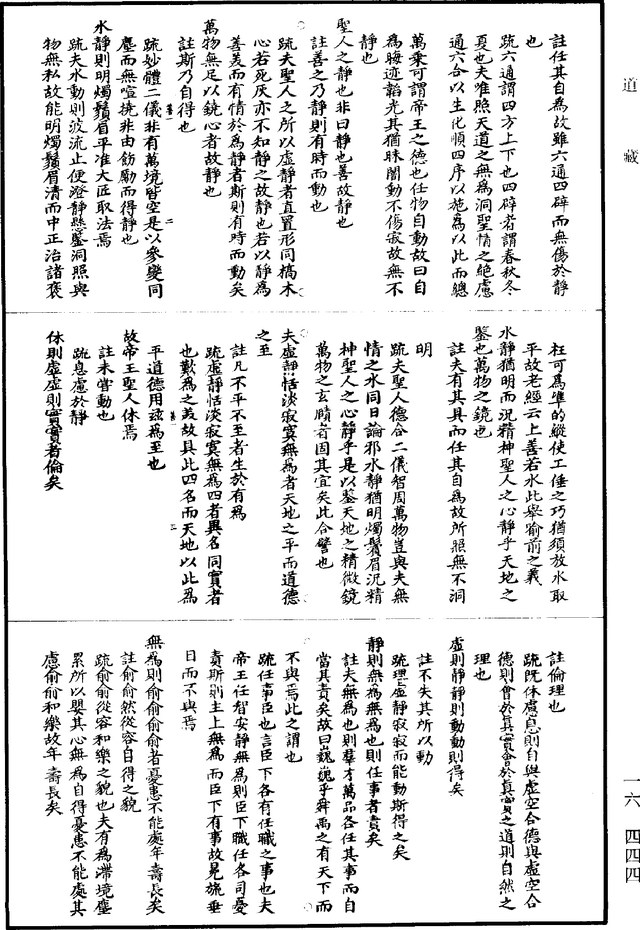 道藏
註任其自為故雖六通四辟而無傷於靜
也
疏六通謂四方上下也四辟者謂春秋冬
夏也夫唯照天道之無為洞聖情之絕慮
通六合以生化順四序以施為以此而總
萬乘可謂帝王之德也任物自動故曰自
為晦迹韜光其猶昧闇動不傷寂故無不
靜也
聖人之靜也非曰靜也善故靜也
註善之乃靜則有時而動也
疏夫聖人之所以虛靜者直置形同槁木
心若死灰亦不知靜之故靜也若以靜為
善美而有情於為靜者斯則有時而動矣
萬物無足以鐃心者故靜也
註斯乃自得也
疏妙體二儀非有萬境皆空是以參變同
塵而無喧撓非由飭勵而得靜也
水靜則明燭鬚眉平准大匠取法焉
疏夫水動則波流止便澄靜懸鑒洞照與
物無私故能明燭鬚眉清而中正治諸衺
枉可為準的縱使工倕之巧猶須放水取
平故老經云上善若水此舉喻前之義
水靜猶明而況精神聖人之心靜乎天地之
鑒也萬物之鏡也
註夫有其具而任其自為故所照無不洞
明
疏夫聖人德合二儀智周萬物豈與夫無
情之水同日論邪水靜猶明燭鬢眉況精
神聖人之心靜乎是以鑒天地之精微鏡
萬物之玄賾者固其宜矣此合譬也
夫虛靜恬淡寂寞無為者天地之平而道德
之至
註凡不平不至者生於有為
疏虛靜恬淡寂寞無為四者異名同實者
也歎為之美故具此四名而天地以此為
平道德用茲為至也
故帝王聖人休焉
註未嘗動也
疏息慮於靜
休則虛虛則實實者倫矣
註倫理也
疏既休慮息則自與虛空合德與虛空合
德則會於真實會於真實之道則自然之
理也
虛則靜靜則動動則得矣
註不失其所以動
疏理虛靜寂寂而能動斯得之矣
靜則無為無為也則任事者責矣
註夫無為也則羣才萬品各任其事而自
當其責矣故曰巍巍乎舜禹之有天下而
不與焉此之謂也
疏任事臣也言臣下各有任職之事也夫
帝王任智安靜無為則臣下職任各司憂
責斯則主上無為而臣下有事故冕旒垂
目而不與焉
無為則俞俞俞俞者憂患不能處年壽長矣
註俞俞然從容自得之貌
疏俞俞從容和樂之貌也夫有為滯境塵
累所以嬰其心無為自得憂患不能處其
慮俞俞和樂故年壽長矣
一六 四四四